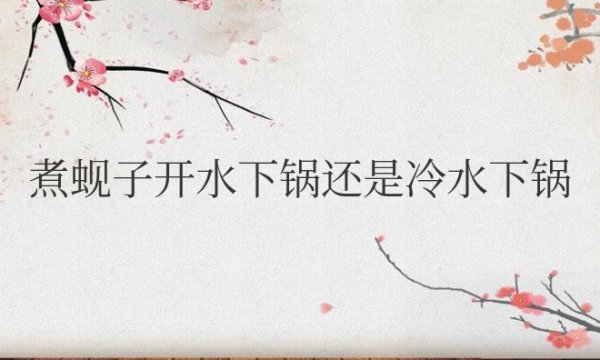 煮蚬子开水下锅还是冷水下锅